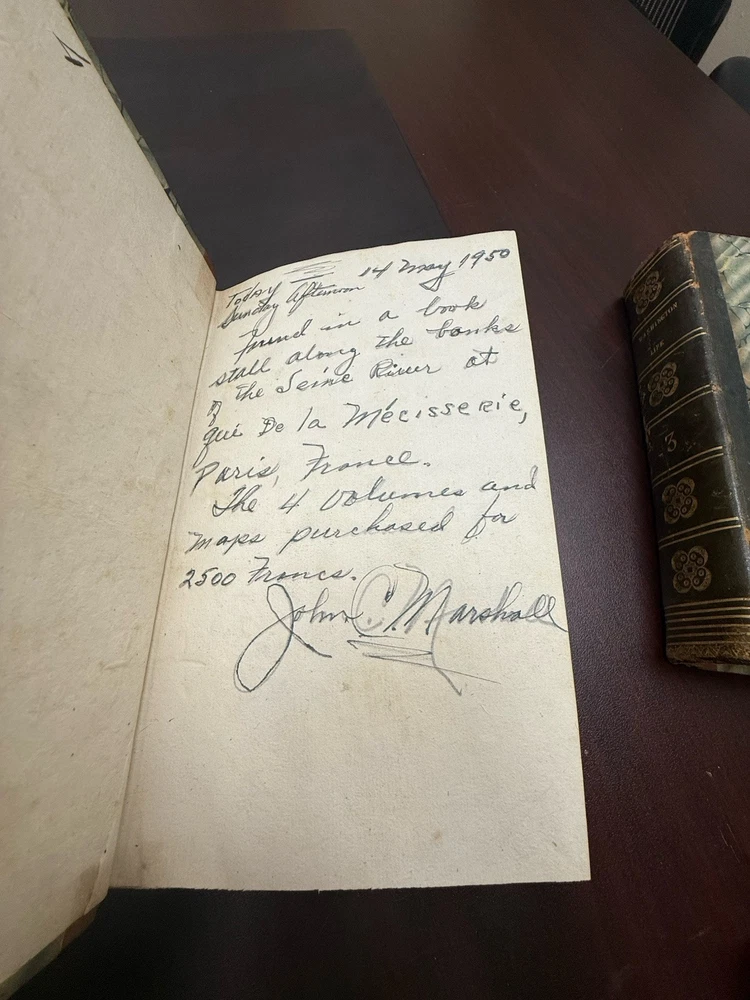 14 May 1950
Today
Sunday Afternoon
Found in a book
stall along the banks
of the Seine River at
qui De la Mécisserie,
Paris, France.
The 4 Volumes and
maps purchased for
2500 Francs.
John C. Marshall
WASHINGTON
LIFE
3